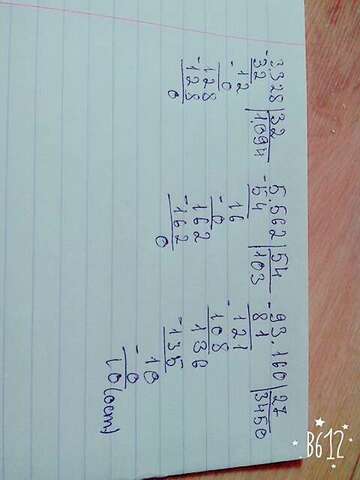 3.328|32
-32 1.094
12
-0
128
-128
0
5.562|54
-54 103
16
-0
162
-162
0
93.160|27
-81 3450
121
-108
136
-135
10
-0
10(ост)
B612